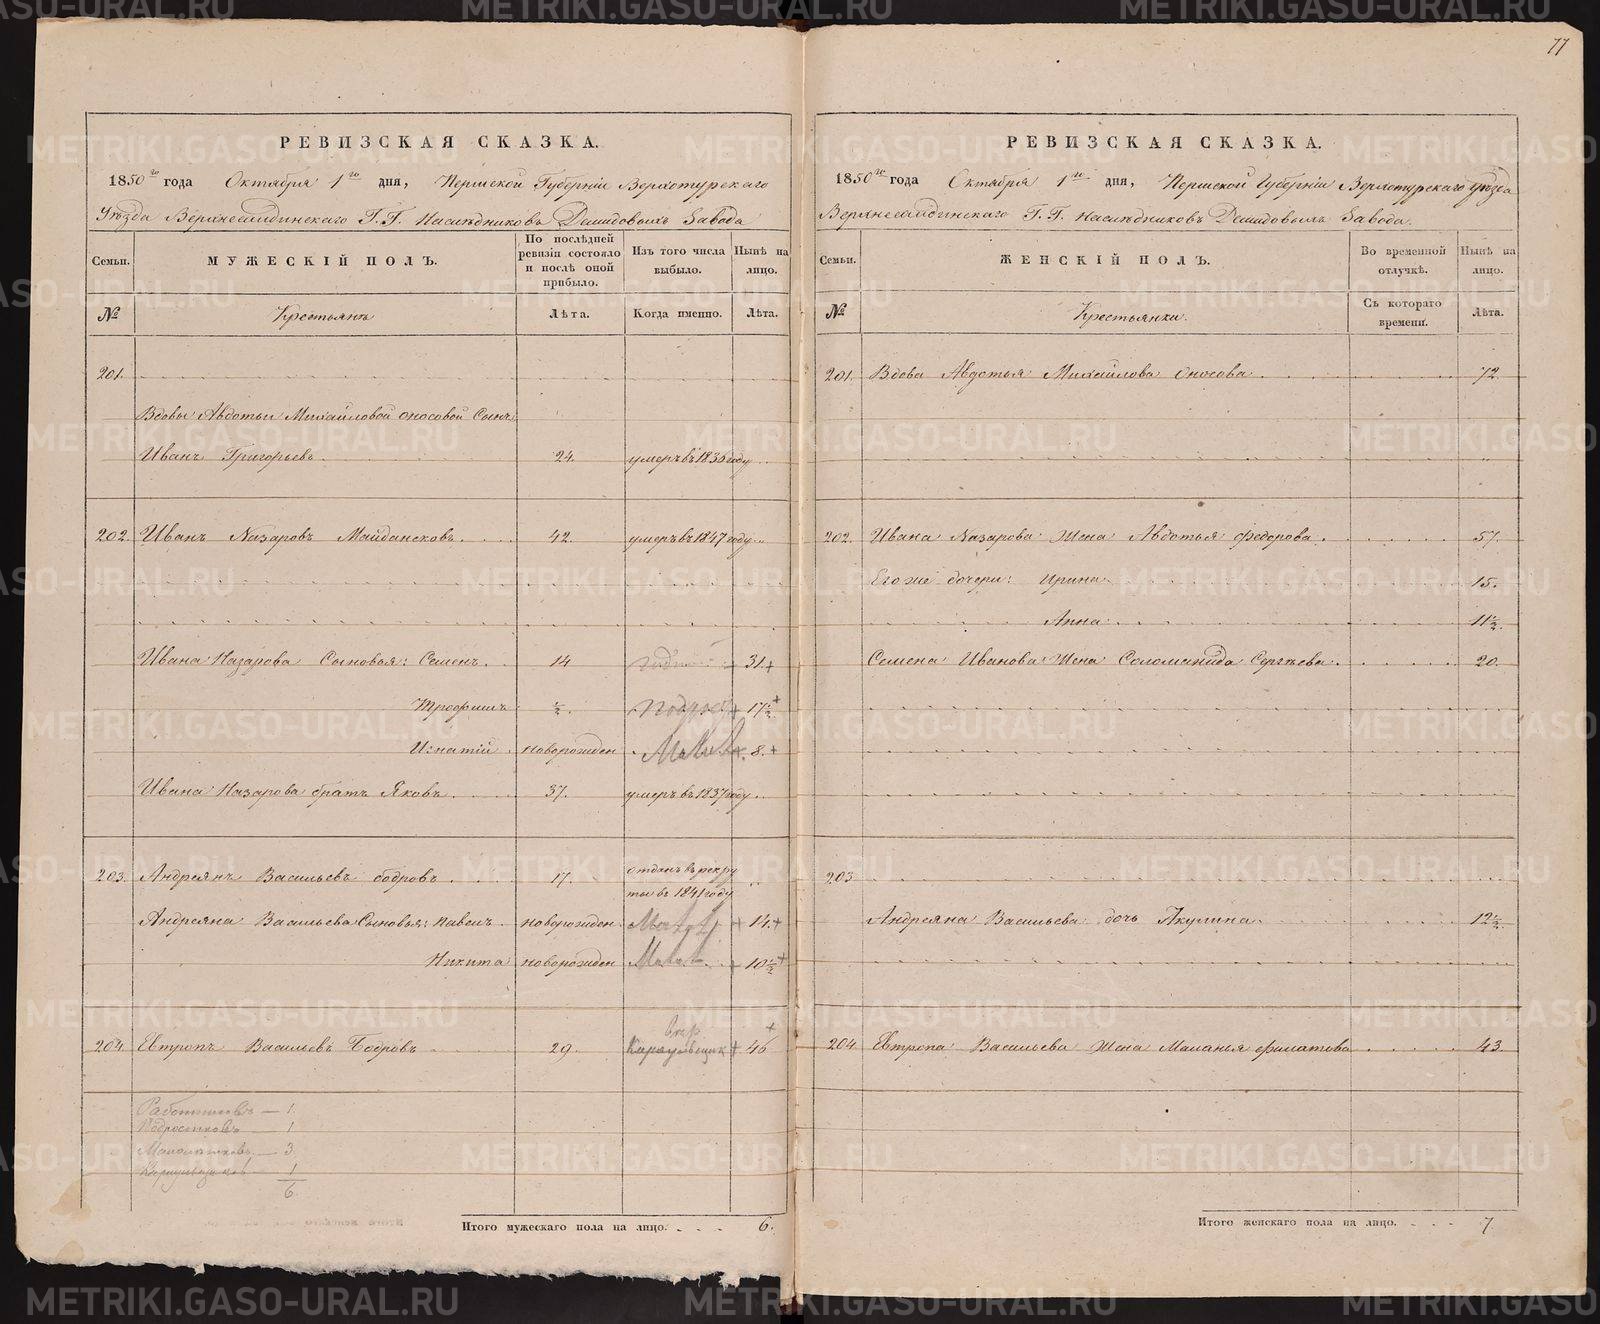 77
РЕВИЗСКАЯ СКАЗКА.
1850го года Октября 1го дня, Пермской Губерніи Верхотурскаго
Уѣзда Верхнесалдинскаго Г.Г. Наслѣдниковъ Демидовыхъ Завода
Семьи. МУЖЕСКІЙ ПОЛЪ. По послѣдней ревизіи состояло и послѣ оной прибыло. Изъ того числа выбыло. Нынѣ на лицо.
№ Крестьянъ Лѣта. Когда именно. Лѣта.
201.
Вдовы Авдотьи Михайловой Оносовой Сынъ:
Иванъ Григорьевъ 24. умеръ въ 1836 году
202. Иванъ Назаровъ Майданековъ. 42. умеръ въ 1847 году
Ивана Назарова Сыновья: Семенъ. 14 31+
Трофимъ ½. Подрос + 17½ +
Игнатій новорожден Малол + 8. +
Ивана Назарова братъ Яковъ. 37. умеръ въ 1837 году
203. Андреянъ Васильевъ Бодровъ. 17. отданъ въ рекруты въ 1841 году
Андреяна Васильева Сыновья: Павелъ новорожден Малол + 14.+
Никита новорожден Малол + 10½ +
204. Евтропъ Васильевъ Бодровъ 29. Караульщик + 46 +
Работниковъ — 1.
Подростковъ — 1
Малолѣтковъ — 3
Караульщиковъ — 1
6.
Итого мужескаго пола на лицо. 6.
РЕВИЗСКАЯ СКАЗКА.
1850го года Октября 1го дня, Пермской Губерніи Верхотурскаго Уѣзда
Верхнесалдинскаго Г.Г. Наслѣдниковъ Демидовыхъ Завода.
Семьи. ЖЕНСКІЙ ПОЛЪ. Во временной отлучкѣ. Нынѣ на лицо.
№ Крестьянки. Съ котораго времени. Лѣта.
201. Вдова Авдотья Михайлова Оносова 72.
202. Ивана Назарова Жена Авдотья Федорова. 57.
Его же дочери: Ирина 15.
Анна 11½.
Семена Иванова Жена Соломанида Сергѣева. 20.
203
Андреяна Васильева дочь Акулина. 12½.
204. Евтропа Васильева Жена Маланья Филатова 43.
Итого женскаго пола на лицо. 7
METRIKI.GASO-URAL.RU